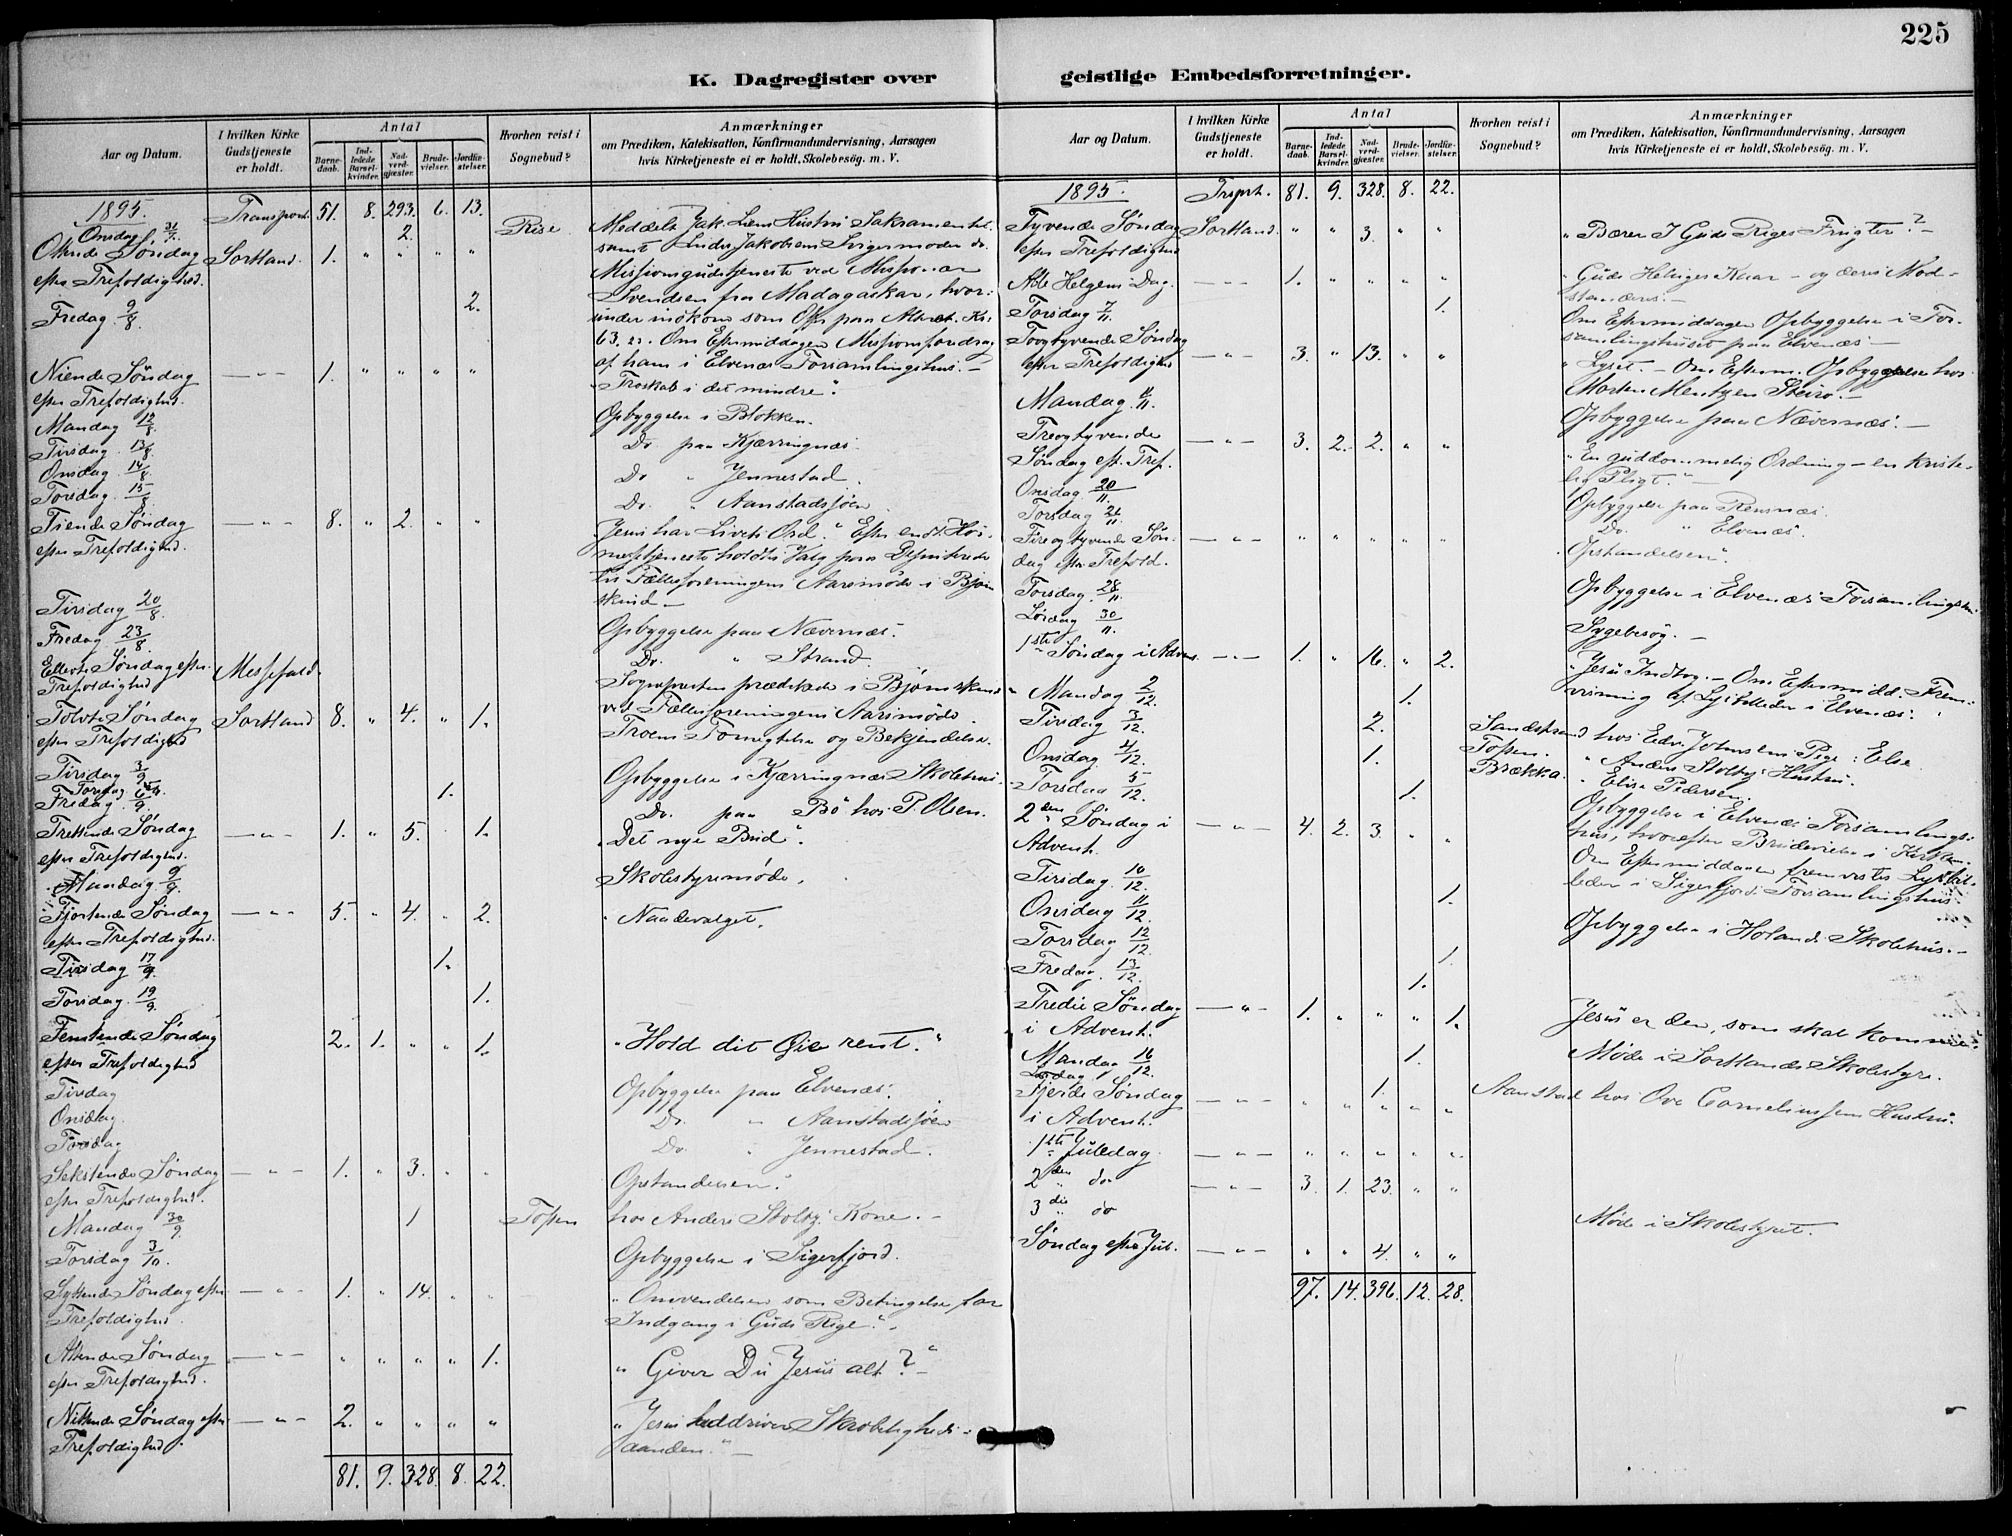 225
K. Dagregister over geistlige Embedsforretninger.
Aar og Datum. I hvilken Kirke Gudstjeneste er holdt. Antal Barnedaab. Indledede Barselkvinder. Nadverdgjæster. Brudevielser. Jordfæstelser. Hvorhen reist i Sognebud? Anmærkninger om Prædiken, Katekisation, Konfirmandundervisning, Aarsagen hvis Kirketjeneste ei er holdt, Skolebesög. m. V.
1895. Transport. 51. 8. 293. 6. 13.
Onsdag 31/7. 2. Rise Meddelt Jak. Liens Hustru Sakramentet
samt Jakobsens Svigermoder do.
Ottende Søndag efter Trefoldighed. Sortland. 1. " " " "
Missionsgudstjeneste ved Missionær
Svendsen fra Madagaskar, hvor-
under indkom som Offer paa Alteret Kr.
63.21. Om Eftermiddagen Missionsforedrag
af ham i Elvenæs Forsamlingshus. -
Fredag 9/8. 2.
Niende Søndag efter Trefoldighed. — " — 1. " " " " "Troskab i det mindre".
Mandag 12/8. Opbyggelse i Blokken.
Tirsdag 13/8. Do. paa Kjærringnæs.
Onsdag 14/8. Do " Jennestad.
Torsdag 15/8. Do. " Aanstadsjøen
Tiende Søndag efter Trefoldighed. — " — 8. " 2. " " "Jesus har Livets Ord." Efter endt Høi-
messetjeneste holdtes Valg paa Deputerede
til Fællesforeningens Aarsmøde i Bjørn
skind —
Tirsdag 20/8. Opbyggelse paa Nævernæs.
Fredag 23/8. Do. " Strand.
Ellevte Søndag efter Trefoldighed Messefald. Sognepresten prædikede i Bjørnskind
ved Fællesforeningens Aarsmøde.
Tolvte Søndag efter Trefoldighed Sortland 8. " 4. " 1. Troens Fornegtelse og Bekjendelse.
Tirsdag 3/9 Opbyggelse i Kjærringnæs Skolehus.
Torsdag
Fredag 6/9. 1. Do. paa Bø hos P. Olsen.
Trettende Søndag efter Trefoldighed. — " — 1. " 5. 1. "Det nye Bud".
Mandag 9/9. Skolestyremøde.
Fjortende Søndag efter Trefoldighed. — " — 5. " 4. " 2. "Naadevalget.
Tirsdag 17/9 1.
Torsdag 19/9. 1.
Femtende Søndag efter Trefoldighed — " — 2. 1. " " 1. "Hold dit Øie rent."
Tirsdag Opbyggelse paa Elvenæs.
Onsdag Do. " Aanstadsjøen
Torsdag Do. " Jennestad.
Sekstende Søndag efter Trefoldighed. — " — 1. " 3. " " Opstandelsen".
Mandag 30/9 1 hos Anders Stoltz' Kone. -
Torsdag 3/10. Opbyggelse i Sigerfjord.
Syttende Søndag efter Trefoldighed. — " — 1. " 14. " " "Omvendelsen som Betingelse for
Indgang i Guds Rige".
Attende Søndag efter Trefoldighed. — " — " " " " 1. "Giver Du Jesus alt?"-
Nittende Søndag efter Trefoldighed. — " — 2. " " " " "Jesus uddriver Skrøbeligheds-
aanden." —
81. 9. 328. 8. 22.
Aar og Datum. I hvilken Kirke Gudstjeneste er holdt. Antal Barnedaab. Indledede Barselkvinder. Nadverdgjæster. Brudevielser. Jordfæstelser. Hvorhen reist i Sognebud? Anmærkninger om Prædiken, Katekisation, Konfirmandundervisning, Aarsagen hvis Kirketjeneste ei er holdt, Skolebesög. m. V.
1895. Trsprt. 81. 9. 328. 8. 22.
Tyvende Søndag efter Trefoldighed Sortland. " " 3. " " "Bærer I Guds Riges Frugter?" -
Alle Helgens Dag. — " — 1. " " " " "Guds Helliges Kaar - og deres Mod-
standere. -
Torsdag 7/11. 1. Om Eftermiddagen Opbyggelse i For-
samlingshuset paa Elvenæs -
Toogtyvende Søndag efter Trefoldighed — " — 3. " 13. " " "Lyset. - Om Efterm. Opbyggelse hos
Morten Mentzen Steiro. -
Mandag 11/11. Opbyggelse paa Nævernæs. -
Treogtyvende Søndag eft. Tref. — " — 3. 2. 2. " " "En guddommelig Ordning - en kriste-
lig Pligt." -
Onsdag 20/11. Opbyggelse paa Rensnæs.
Torsdag 21/11 Do. " Elvenæs.
Fireogtyvende Søn- dag efter Trefold. — " — " " " " " Opstandelsen".
Torsdag 28/11. Opbyggelse i Elvenæs Forsamlingshus
Lørdag 30/11. Sygebesøg. -
1ste Søndag i Advent. — " — 1. " 16. " 2. "Jesu Indtog. - Om Eftermidd. Frem-
visning af Lysbilleder i Elvenæs.
Mandag 2/12. 1.
Tirsdag 3/12. 2. Sandstrand hos Edv. Johnsens Pige: Else
Onsdag 4/12. 1. " Anders Stoltz' Hustru.
Torsdag 5/12. 1. Brækka. " Elise Pedersen
Opbyggelse i Elvenæs Forsamlings-
hus, hvorefter Brudevielse i Kirken.
2den Søndag i Advent. — " — 4. 2. 3. " " Om Eftermiddagen fremvistes Lysbil-
leder i Sigerfjord Forsamlingshus.
Tirsdag 10/12.
Onsdag 11/12. 1.
Torsdag 12/12. Opbyggelse i Holands Skolehus. -
Fredag 13/12. 1.
1.
Tredie Søndag i Advent. — " — 1. " " " 1. Jesus er den, som skal komme.
Mandag 16/12. 1. Møde i Sortlands Skolestyre.
Lørdag 1. Aanstad hos Ove Corneliussens Hustru.
Fjerde Søndag i Advent. — " — " " " " "
1ste Juledag. — " — " " " " "
2den do — " — 3. 1. 23. " "
3die do Møde i Skolestyret.
Søndag efter Jul. — " — " " 4. " "
97. 14. 396. 12. 28.